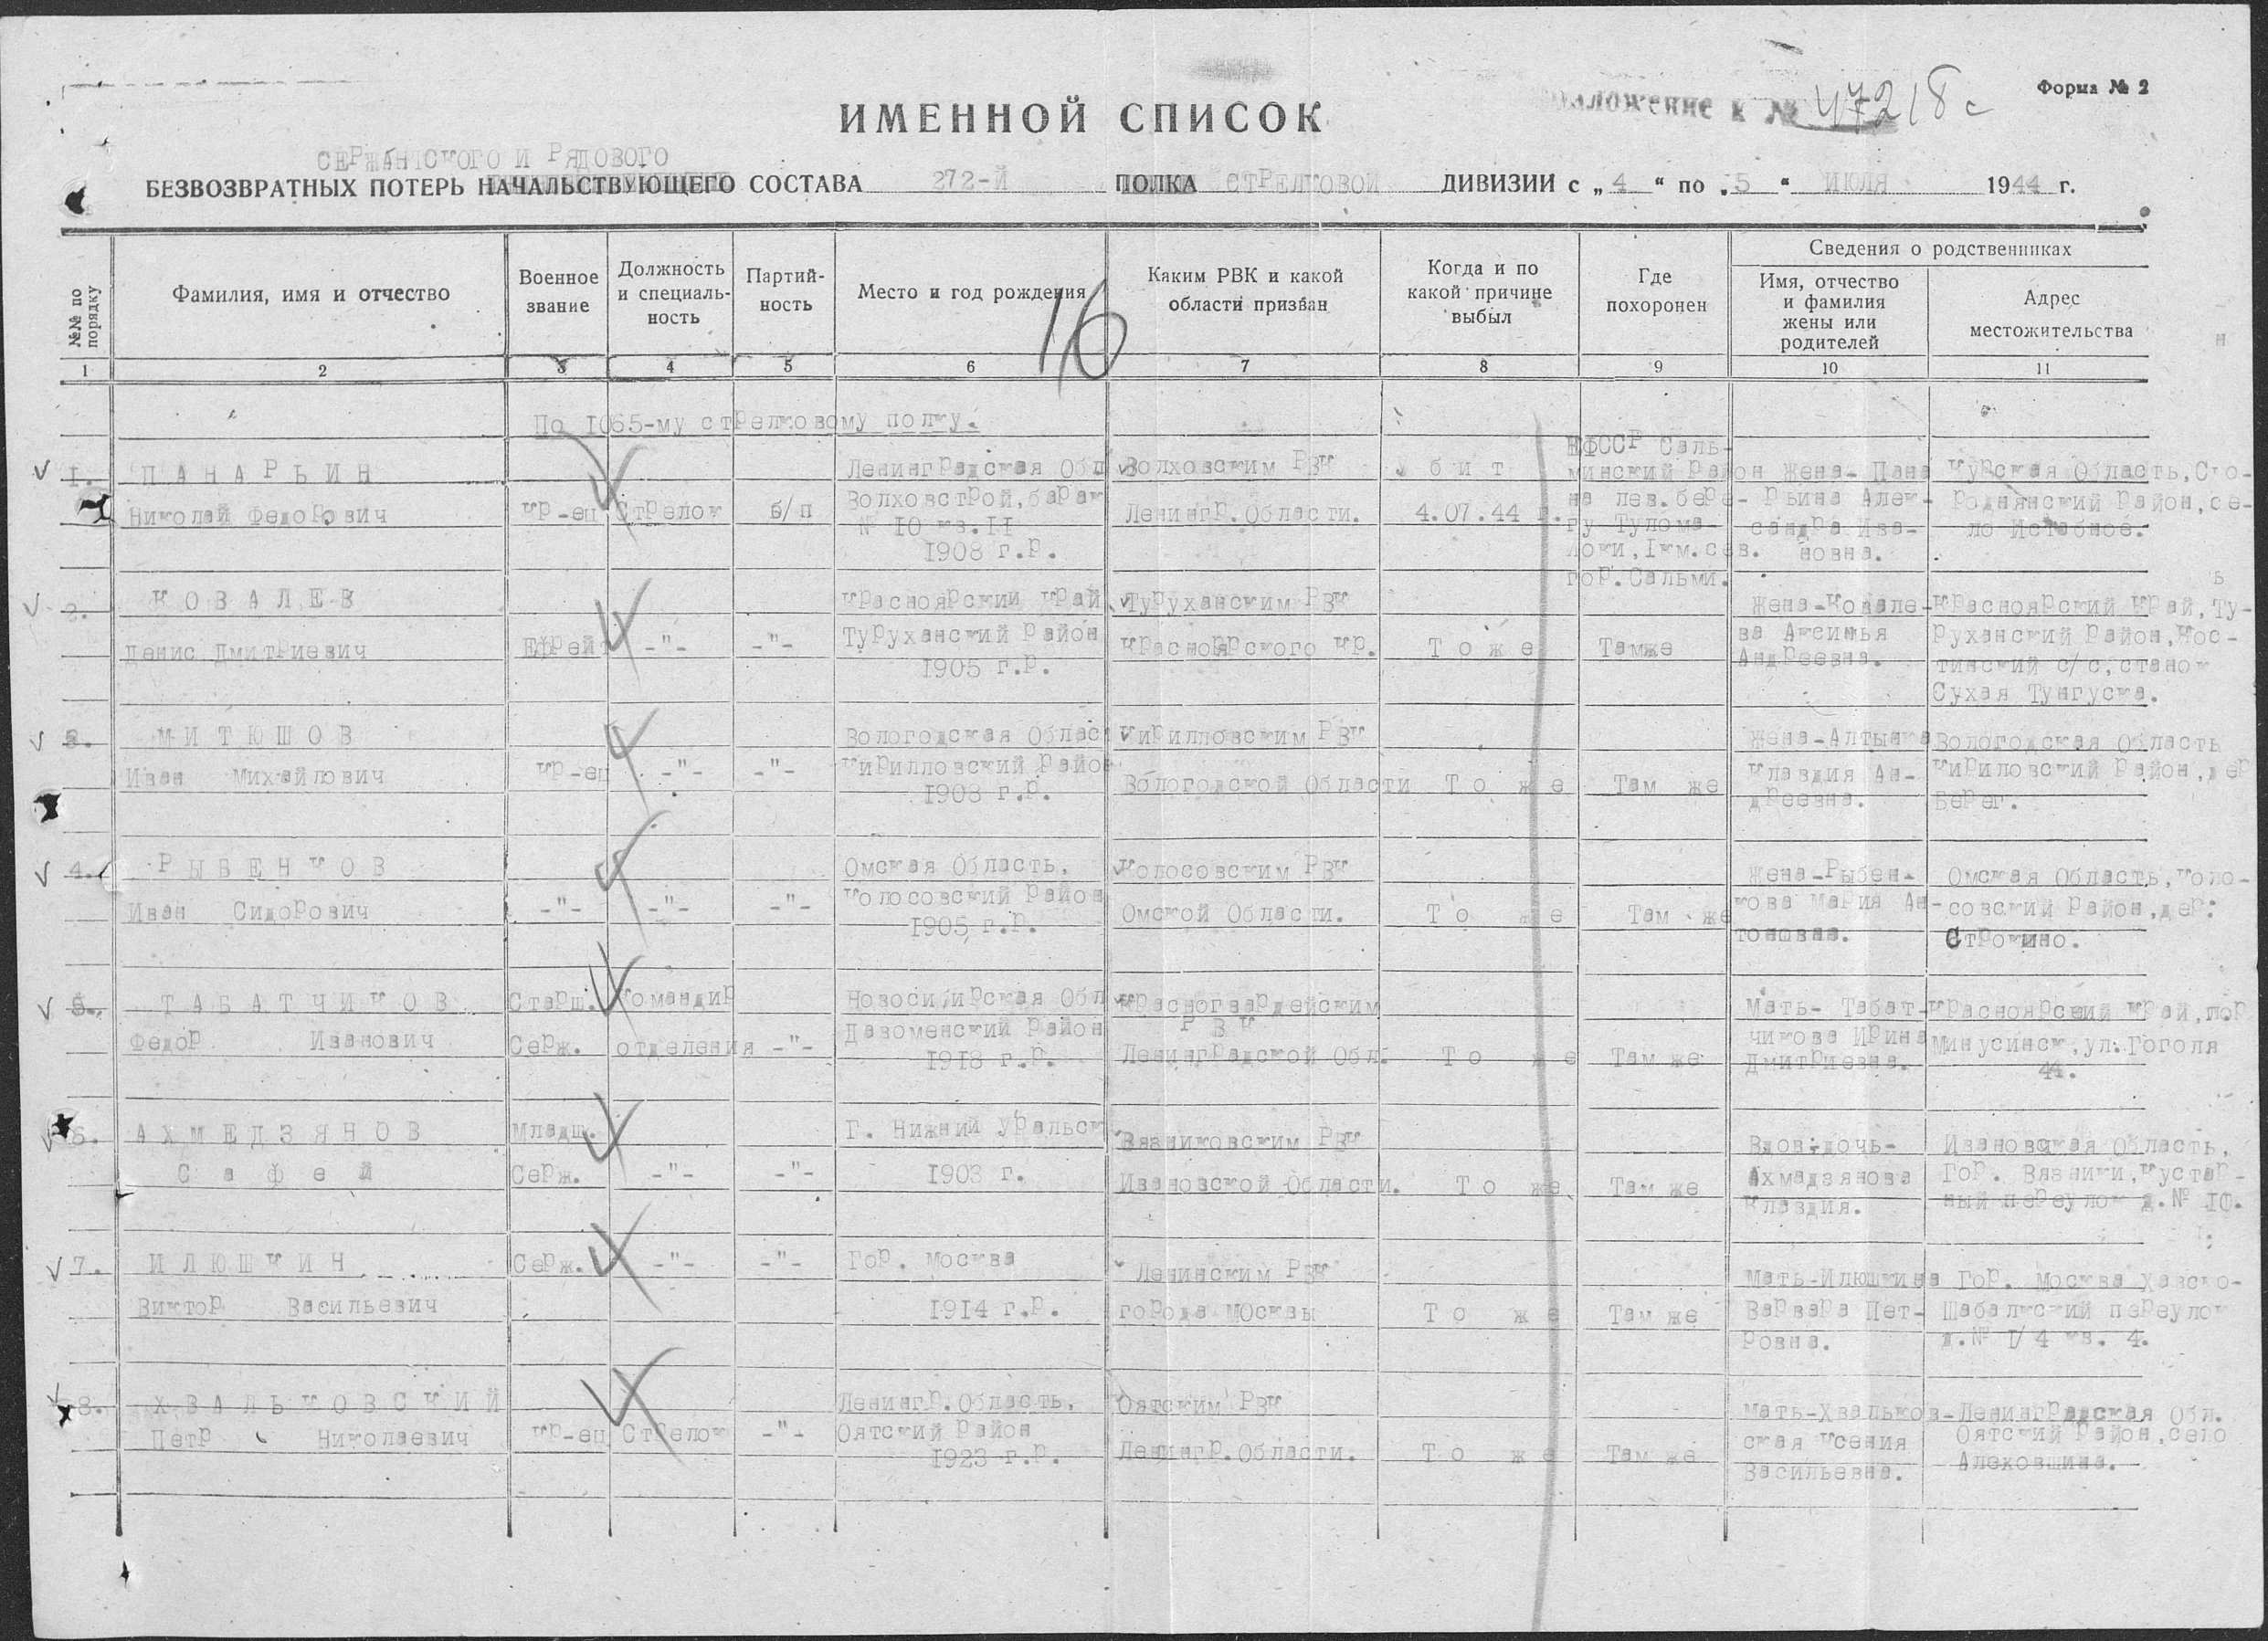 Форма № 2
Приложение к № 47218с
ИМЕННОЙ СПИСОК
СЕРЖАНТСКОГО И РЯДОВОГО
БЕЗВОЗВРАТНЫХ ПОТЕРЬ НАЧАЛЬСТВУЮЩЕГО СОСТАВА 272-Й ПОЛКА СТРЕЛКОВОЙ ДИВИЗИИ с „ 4 “ по „ 5 “ ИЮЛЯ 1944 г.
№№ по порядку
Фамилия, имя и отчество
Военное звание
Должность и специаль-
ность
Партий-
ность
Место и год рождения
16
Каким РВК и какой
области призван
Когда и по
какой причине
выбыл
Где
похоронен
Сведения о родственниках
Имя, отчество
и фамилия
жены или
родителей
Адрес
местожительства
1 2 3 4 5 6 7 8 9 10 11
По 1065-му стрелковому полку.
1. ПАНАРЬИН
Николай Федорович
кр-ец Стрелок б/п
Ленинградская Обл
Волховстрой, барак
№ 10 кв.11
1908 г.р.
Волховским РВК
Ленингр. Области.
убит
4.07.44 г.
КФССР Саль-
минский район
на лев. бере-
гу Тулома-
йоки, 1км.сев.
гор. Сальми.
Жена- Пана
рьина Алек-
сандра Ива-
новна.
Курская Область, Ско-
роднянский район, се-
ло Истобное.
2. КОВАЛЕВ
Денис Дмитриевич
Ефрейт -"- -"-
Красноярский край
Туруханский район
1905 г.р.
Туруханским РВК
Красноярского кр.
То же
Тамже
Жена-Ковале-
ва Аксинья
Андреевна.
Красноярский Край, Ту-
руханский район, Кос-
тинский с/с, станок
Сухая Тунгуска.
3. МИТЮШОВ
Иван Михайлович
кр-ец -"- -"-
Вологодская Област
Кирилловский район
1908 г.р.
Кирилловским РВК
Вологодской Области
То же
Там же
Жена-Алтынка
Клавдия Ан-
дреевна.
Вологодская Область
Кириловский район, дер
Берег.
4. РЫБЕНКОВ
Иван Сидорович
-"- -"- -"-
Омская Область,
Колосовский район
1905 г.р.
Колосовским РВК
Омской Области.
То же
Там же
Жена-Рыбен-
кова Мария Ан-
тоновна.
Омская Область, Коло-
совский район, дер.
Строкино.
5. ТАБАТЧИКОВ
Федор Иванович
Старш.
Серж.
Командир
отделения -"-
Новосибирская Обл
Давоменский район
1918 г.р.
Красногвардейским
РВК
Ленинградской Обл.
То же
Там же
Мать- Табат-
чикова Ирина
Дмитриевна.
Красноярский край, гор
Минусинск, ул. Гоголя
44.
6. АХМЕДЗЯНОВ
Сафей
Младш.
Серж. -"- -"-
Г. Нижний Уральск
1903 г.
Вязниковским РВК
Ивановской Области.
То же
Там же
Вдов; дочь-
Ахмадзянова
Клавдия.
Ивановская Область,
Гор. Вязники, Кустар-
ный переулок д.№ 10.
7. ИЛЮШКИН
Виктор Васильевич
Серж. -"- -"-
Гор. Москва
1914 г.р.
Ленинским РВК
города Москвы
То же
Там же
Мать-Илюшкина
Варвара Пет-
ровна.
Гор. Москва Хавско-
Шабалкский переулок
д.№ 1/4 кв. 4.
8. ХВАЛЬКОВСКИЙ
Петр Николаевич
кр-ец Стрелок -"-
Ленингр. Область,
Оятский район
1923 г.р.
Оятским РВК
Ленингр. Области.
То же
Там же
Мать-Хвальков-
ская Ксения
Васильевна.
Ленинградская Обл.
Оятский район, село
Алеховщина.